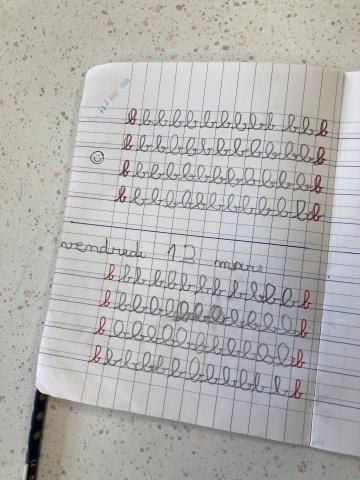 b b b b b b b b b b b b b
b b b b b b b b b b b b b
b b b b b b b b b b b b b
b b b b b b b b b b b b b
vendredi 12 mars
b b b b b b b b b b b b b
b b b b b b b b b b b b b
b b b b b b b b b b b b b
b b b b b b b b b b b b b